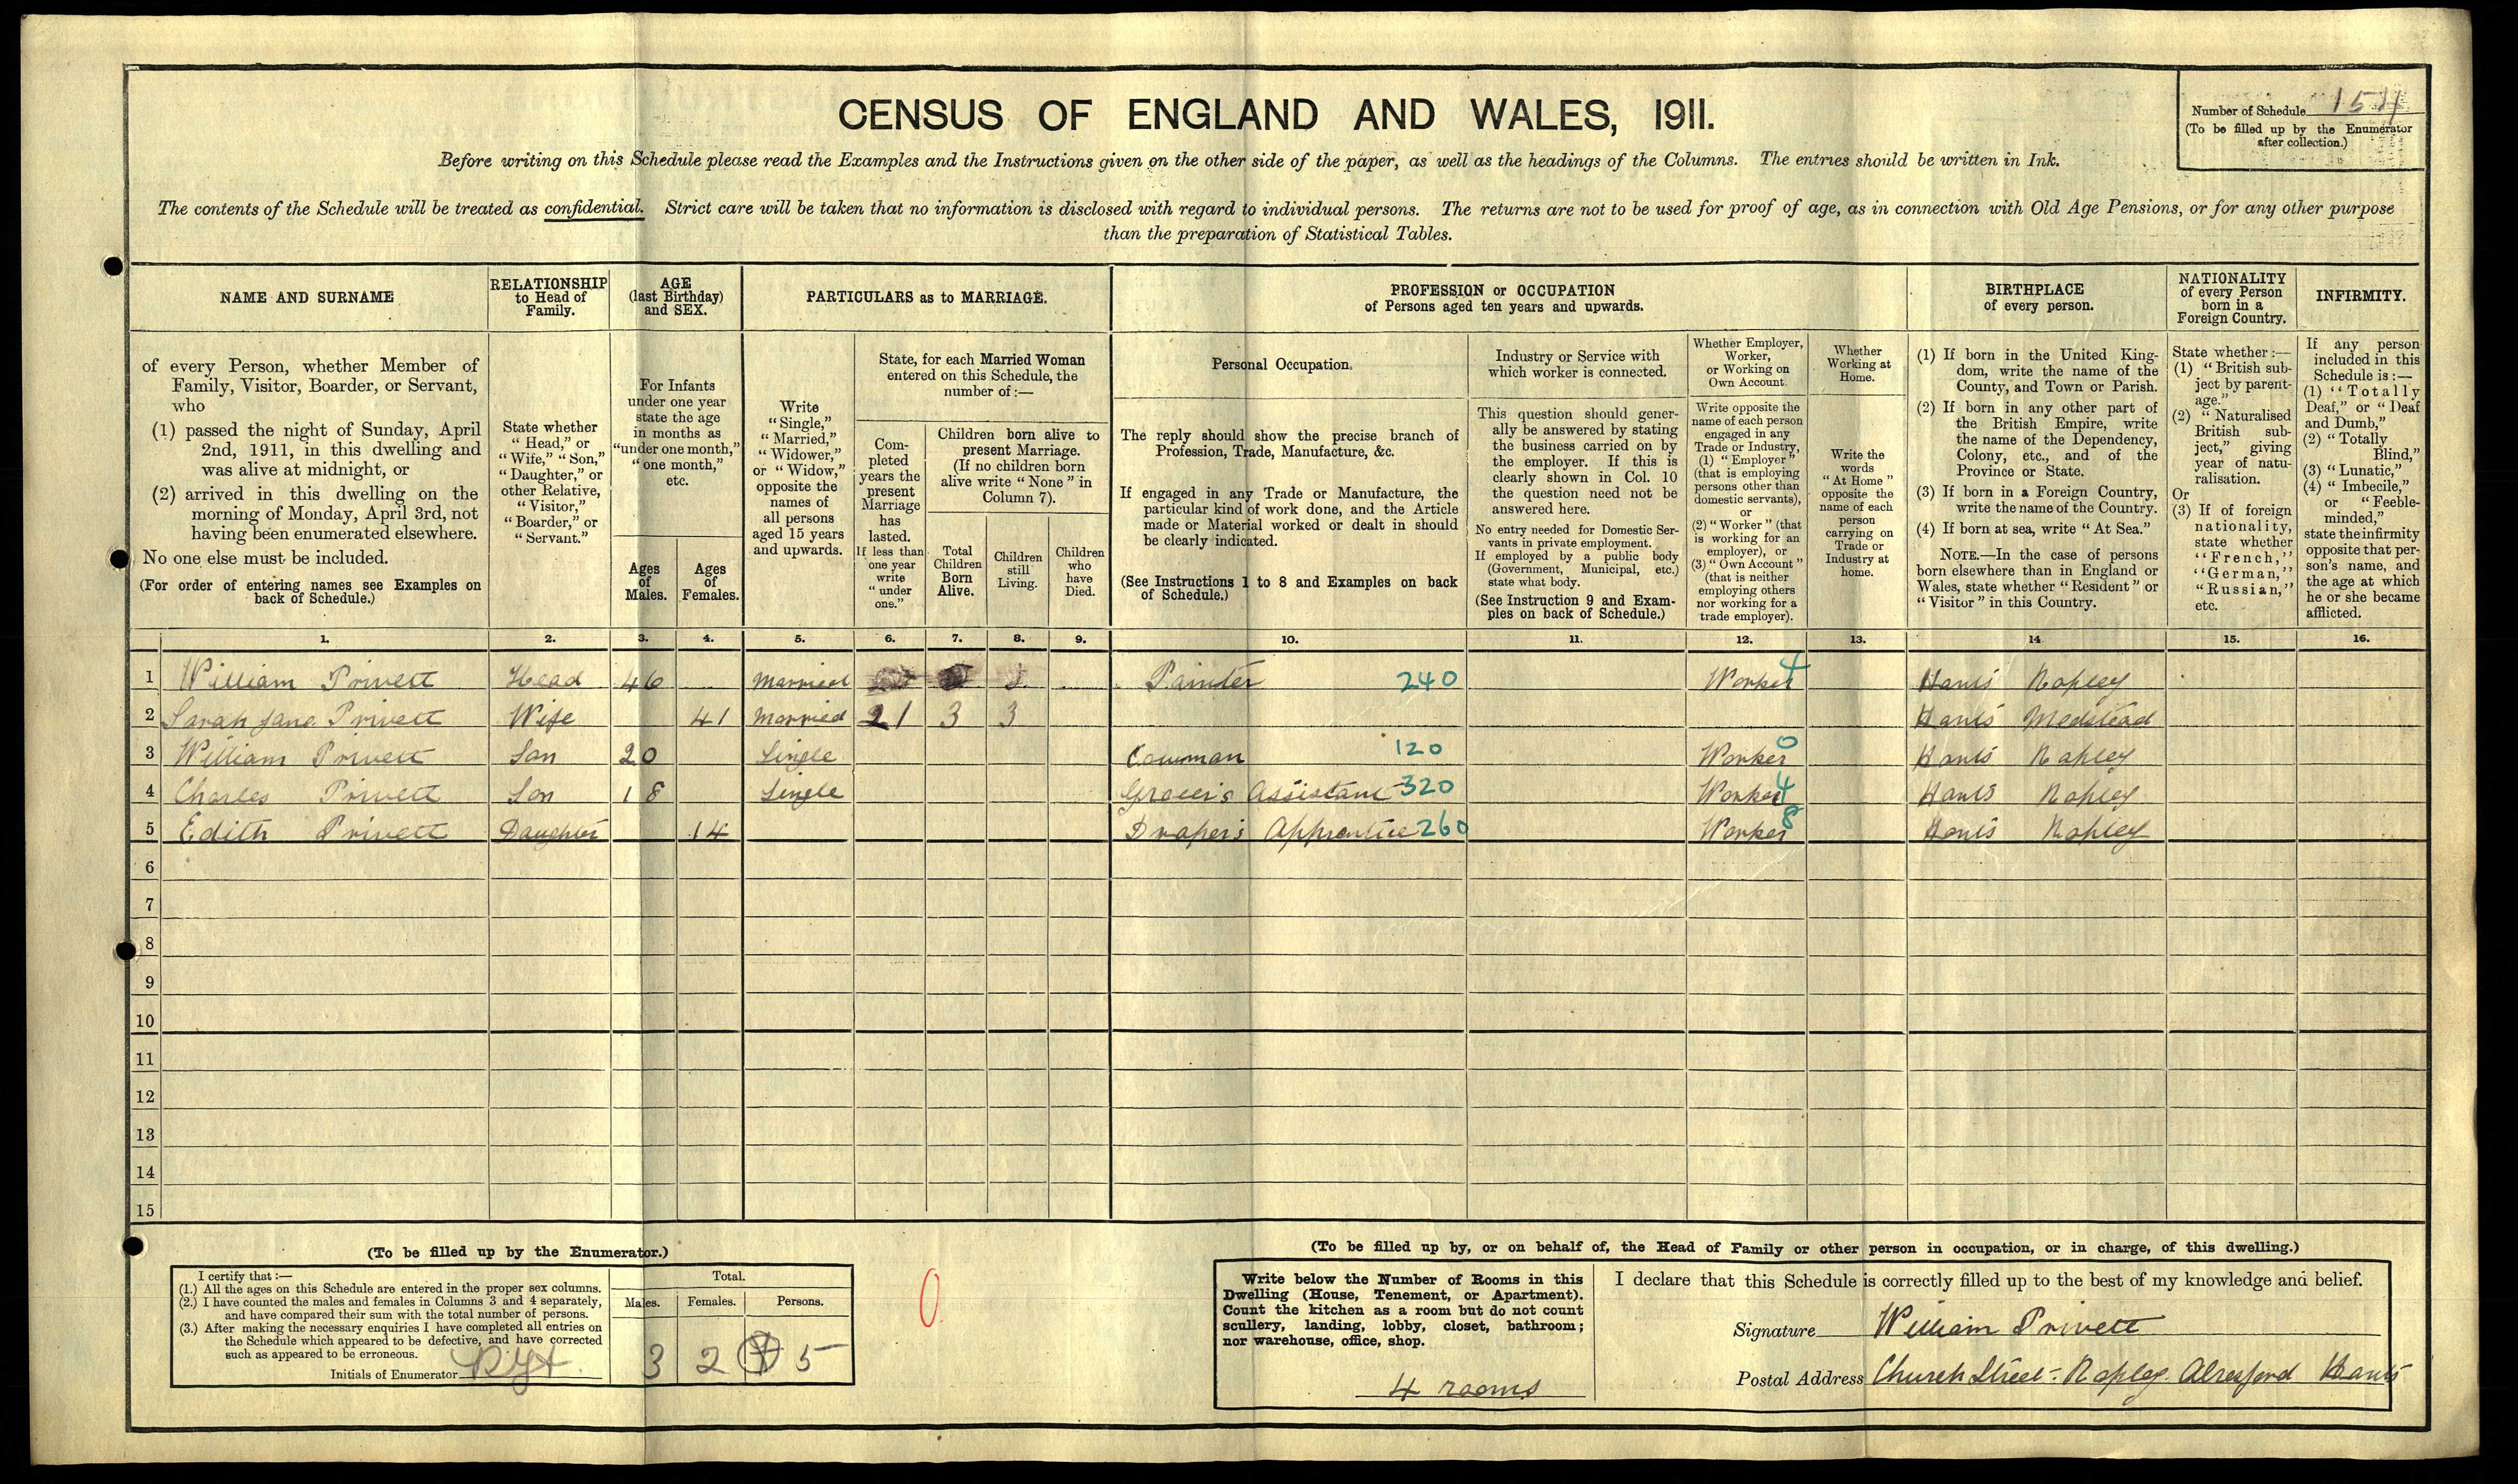 CENSUS OF ENGLAND AND WALES, 1911.
Number of Schedule
(To be filled up by the Enumerator
after collection.)
Before writing on this Schedule please read the Examples and the Instructions given on the other side of the paper, as well as the headings of the Columns. The entries should be written in Ink.
The contents of the Schedule will be treated as confidential. Strict care will be taken that no information is disclosed with regard to individual persons. The returns are not to be used for proof of age, as in connection with Old Age Pensions, or for any other purpose
than the preparation of Statistical Tables.
NAME AND SURNAME
RELATIONSHIP
to Head of
Family.
AGE
(last Birthday)
and SEX.
PARTICULARS as to MARRIAGE.
PROFESSION or OCCUPATION
of Persons aged ten years and upwards.
BIRTHPLACE
of every person.
NATIONALITY
of every Person
born in a
Foreign Country.
INFIRMITY.
of every Person, whether Member of
Family, Visitor, Boarder, or Servant,
who
(1) passed the night of Sunday, April
2nd, 1911, in this dwelling and
was alive at midnight, or
(2) arrived in this dwelling on the
morning of Monday, April 3rd, not
having been enumerated elsewhere.
No one else must be included.
(For order of entering names see Examples on
back of Schedule.)
State whether
"Head," or
"Wife," "Son,"
"Daughter," or
other Relative,
"Visitor,"
"Boarder," or
"Servant."
For Infants
under one year
state the age
in months as
"under one month,"
"one month,"
etc.
Ages
of
Males.
Ages
of
Females.
Write
"Single,"
"Married,"
"Widower,"
or "Widow,"
opposite the
names of
all persons
aged 15 years
and upwards.
State, for each Married Woman
entered on this Schedule, the
number of :—
Com-
pleted
years the
present
Marriage
has
lasted.
If less than
one year
write
"under
one."
Children born alive to
present Marriage.
(If no children born
alive write "None" in
Column 7).
Total
Children
Born
Alive.
Children
still
Living.
Children
who
have
Died.
Personal Occupation.
The reply should show the precise branch of
Profession, Trade, Manufacture, &c.
If engaged in any Trade or Manufacture, the
particular kind of work done, and the Article
made or Material worked or dealt in should
be clearly indicated.
(See Instructions 1 to 8 and Examples on back
of Schedule.)
Industry or Service with
which worker is connected.
This question should gener-
ally be answered by stating
the business carried on by
the employer. If this is
clearly shown in Col. 10
the question need not be
answered here.
No entry needed for Domestic Ser-
vants in private employment.
If employed by a public body
(Government, Municipal, etc.)
state what body.
(See Instruction 9 and Exam-
ples on back of Schedule.)
Whether Employer,
Worker,
or Working on
Own Account.
Write opposite the
name of each person
engaged in any
Trade or Industry,
(1) "Employer"
(that is employing
persons other than
domestic servants),
or
(2) "Worker" (that
is working for an
employer), or
(3) "Own Account"
(that is neither
employing others
nor working for a
trade employer).
Whether
Working at
Home.
Write the
words
"At Home"
opposite the
name of each
person
carrying on
Trade or
Industry at
home.
(1) If born in the United King-
dom, write the name of the
County, and Town or Parish.
(2) If born in any other part of
the British Empire, write
the name of the Dependency,
Colony, etc., and of the
Province or State.
(3) If born in a Foreign Country,
write the name of the Country.
(4) If born at sea, write "At Sea."
NOTE.—In the case of persons
born elsewhere than in England or
Wales, state whether "Resident" or
"Visitor" in this Country.
State whether :—
(1) "British sub-
ject by parent-
age."
(2) "Naturalised
British sub-
ject," giving
year of natu-
ralisation.
Or
(3) If of foreign
nationality,
state whether
"French,"
"German,"
"Russian,"
etc.
If any person
included in this
Schedule is :—
(1) "Totally
Deaf," or "Deaf
and Dumb,"
(2) "Totally
Blind,"
(3) "Lunatic,"
(4) "Imbecile,"
or "Feeble-
minded,"
state the infirmity
opposite that per-
son's name, and
the age at which
he or she became
afflicted.
1. 2. 3. 4. 5. 6. 7. 8. 9. 10. 11. 12. 13. 14 15. 16.
1 William Privett Head 46 Married Painter 240 Worker 4 Hants Ropley
2 Sarah Jane Privett Wife 41 Married 21 3 3 Hants Medstead
3 William Privett Son 20 Single Cowman 120 Worker 0 Hants Ropley
4 Charles Privett Son 18 Single Grocer's Assistant 320 Worker 4 Hants Ropley
5 Edith Privett Daughter 14 Draper's Apprentice 260 Worker 8 Hants Ropley
6
7
8
9
10
11
12
13
14
15
(To be filled up by the Enumerator.)
I certify that :—
(1.) All the ages on this Schedule are entered in the proper sex columns.
(2.) I have counted the males and females in Columns 3 and 4 separately,
and have compared their sum with the total number of persons.
(3.) After making the necessary enquiries I have completed all entries on
the Schedule which appeared to be defective, and have corrected
such as appeared to be erroneous.
Initials of Enumerator
Total.
Males. Females. Persons.
3 2 5
0
(To be filled up by, or on behalf of, the Head of Family or other person in occupation, or in charge, of this dwelling.)
Write below the Number of Rooms in this
Dwelling (House, Tenement, or Apartment).
Count the kitchen as a room but do not count
scullery, landing, lobby, closet, bathroom;
nor warehouse, office, shop.
4 rooms
I declare that this Schedule is correctly filled up to the best of my knowledge and belief.
Signature William Privett
Postal Address Church Street Ropley Alresford Hants